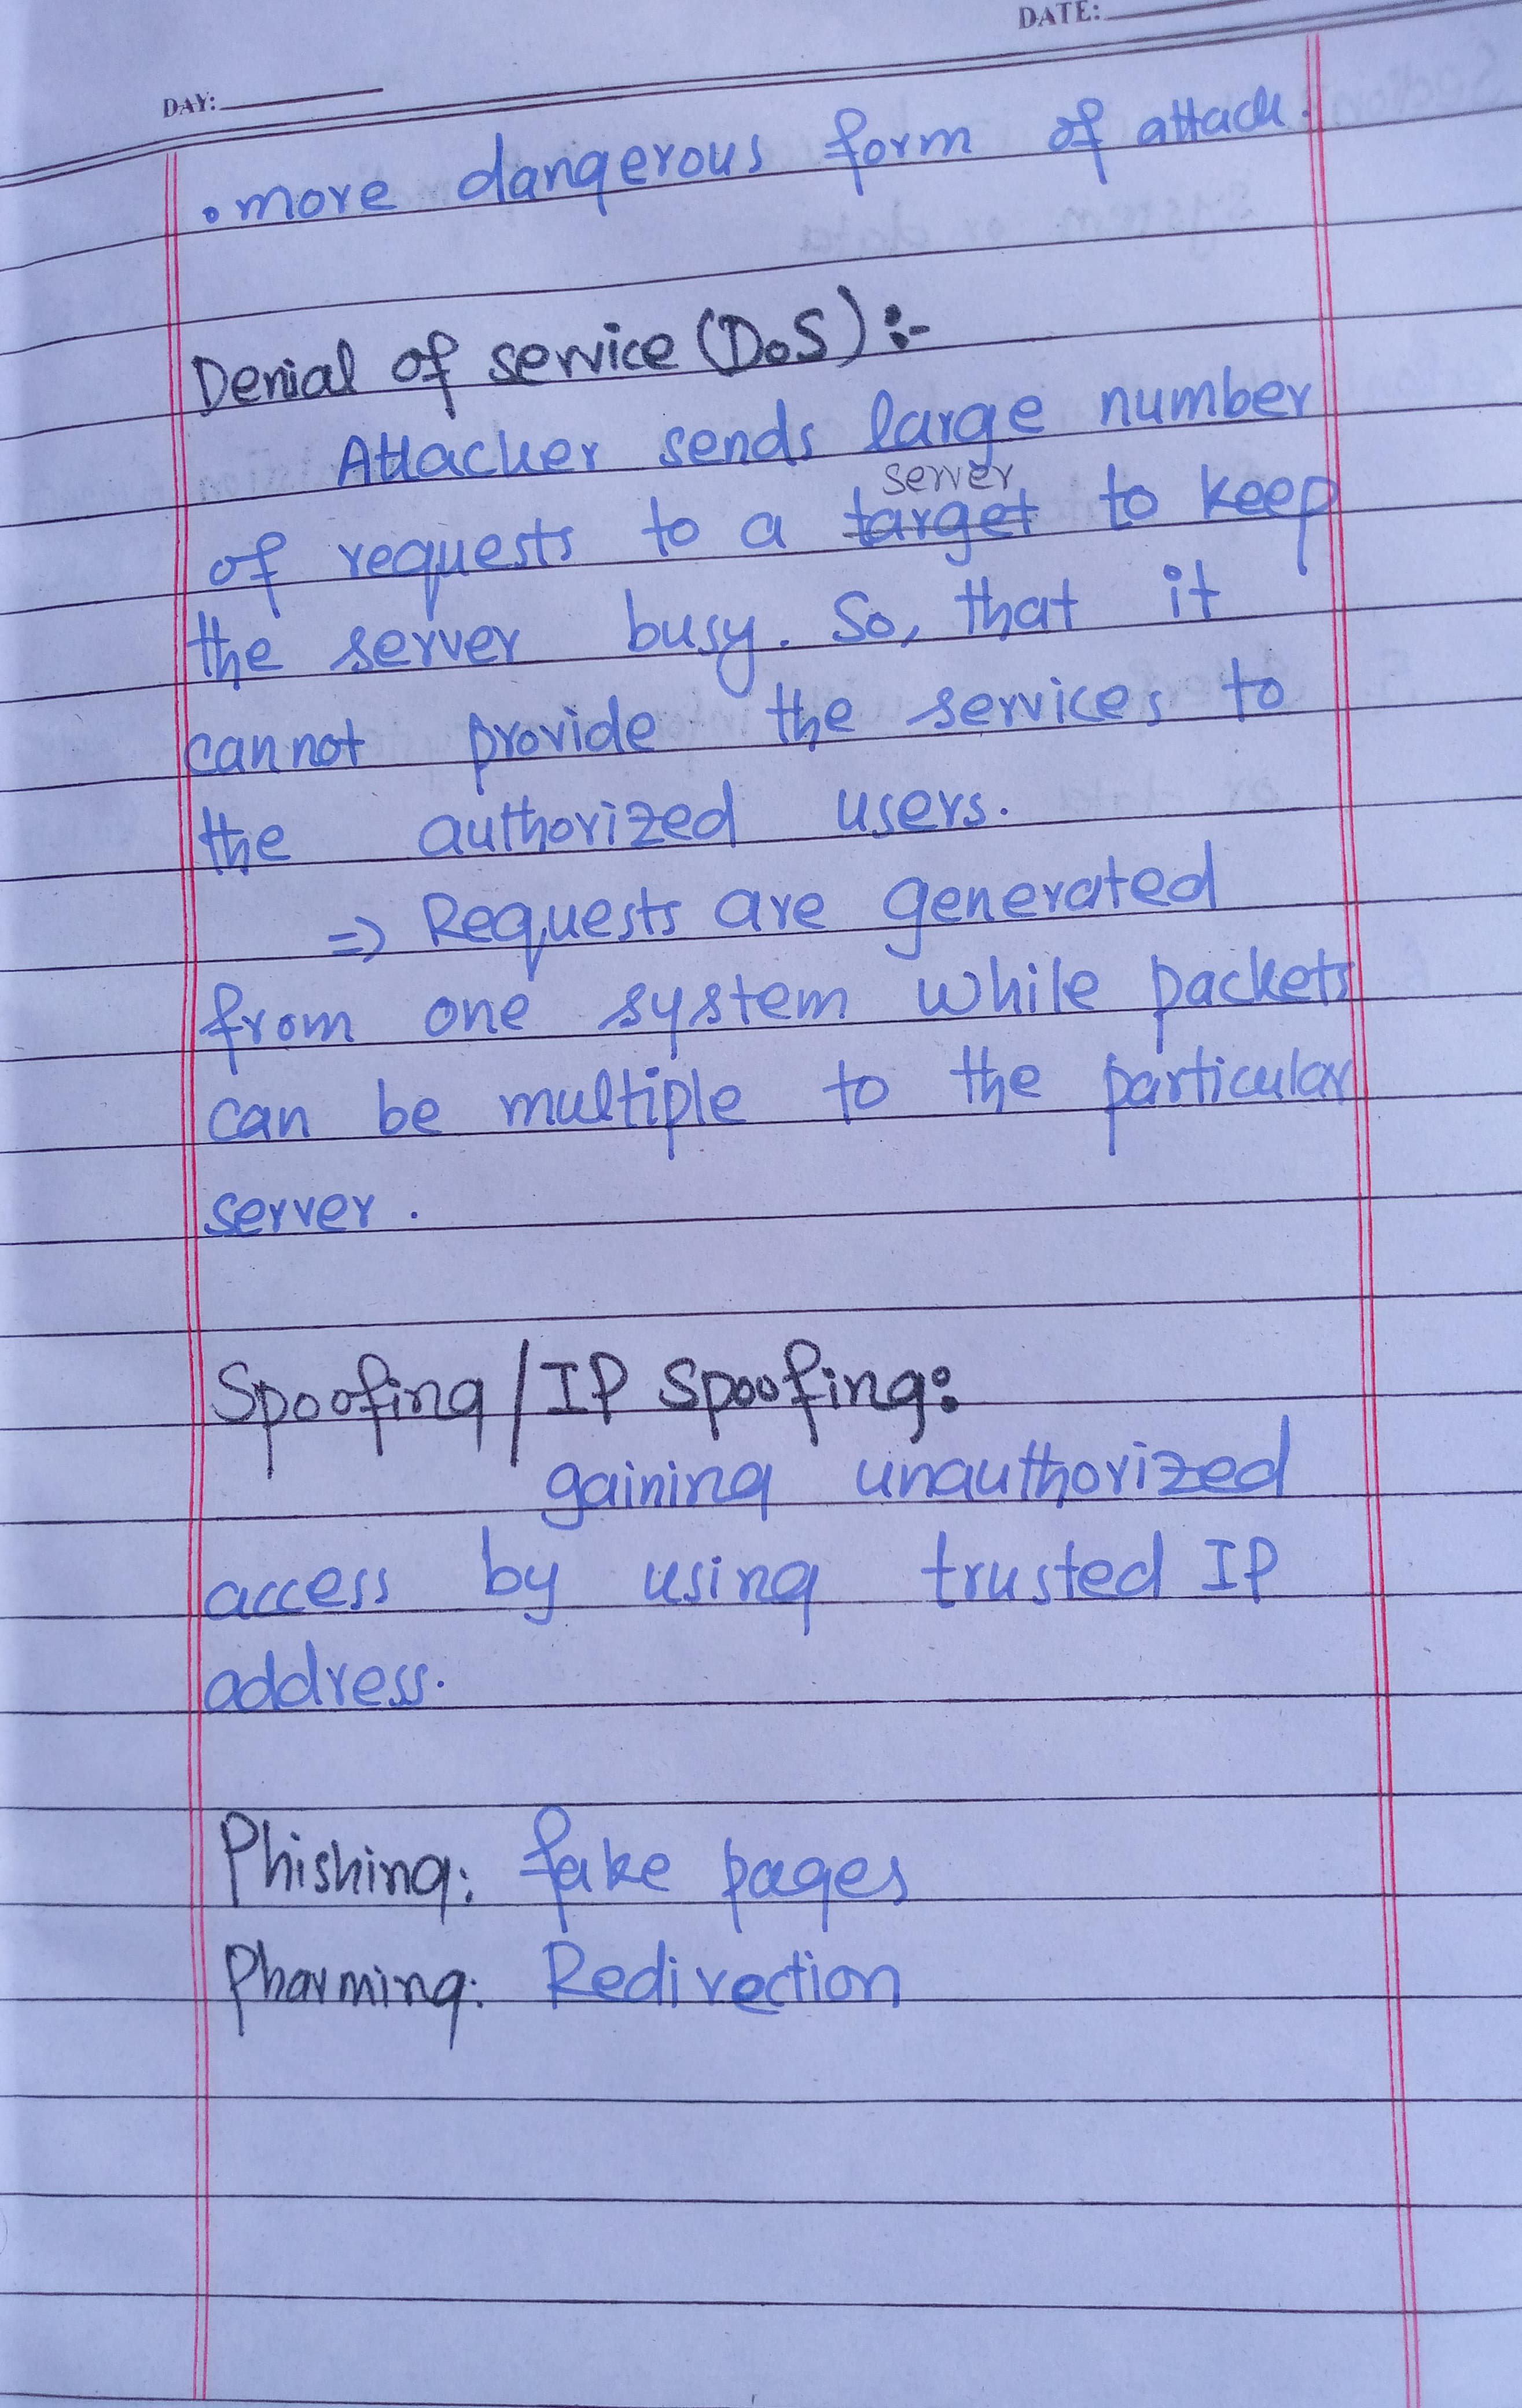 DATE:
DAY:
• more dangerous form of attack.
Denial of service (DoS) :-
Attacker sends large number
server
of requests to a target to keep
the server busy. So, that it
cannot provide the services to
the authorized users.
=> Requests are generated
from one system while packets
can be multiple to the particular
server.
Spoofing / IP Spoofing:
gaining unauthorized
access by using trusted IP
address.
Phishing: fake pages
Pharming: Redirection